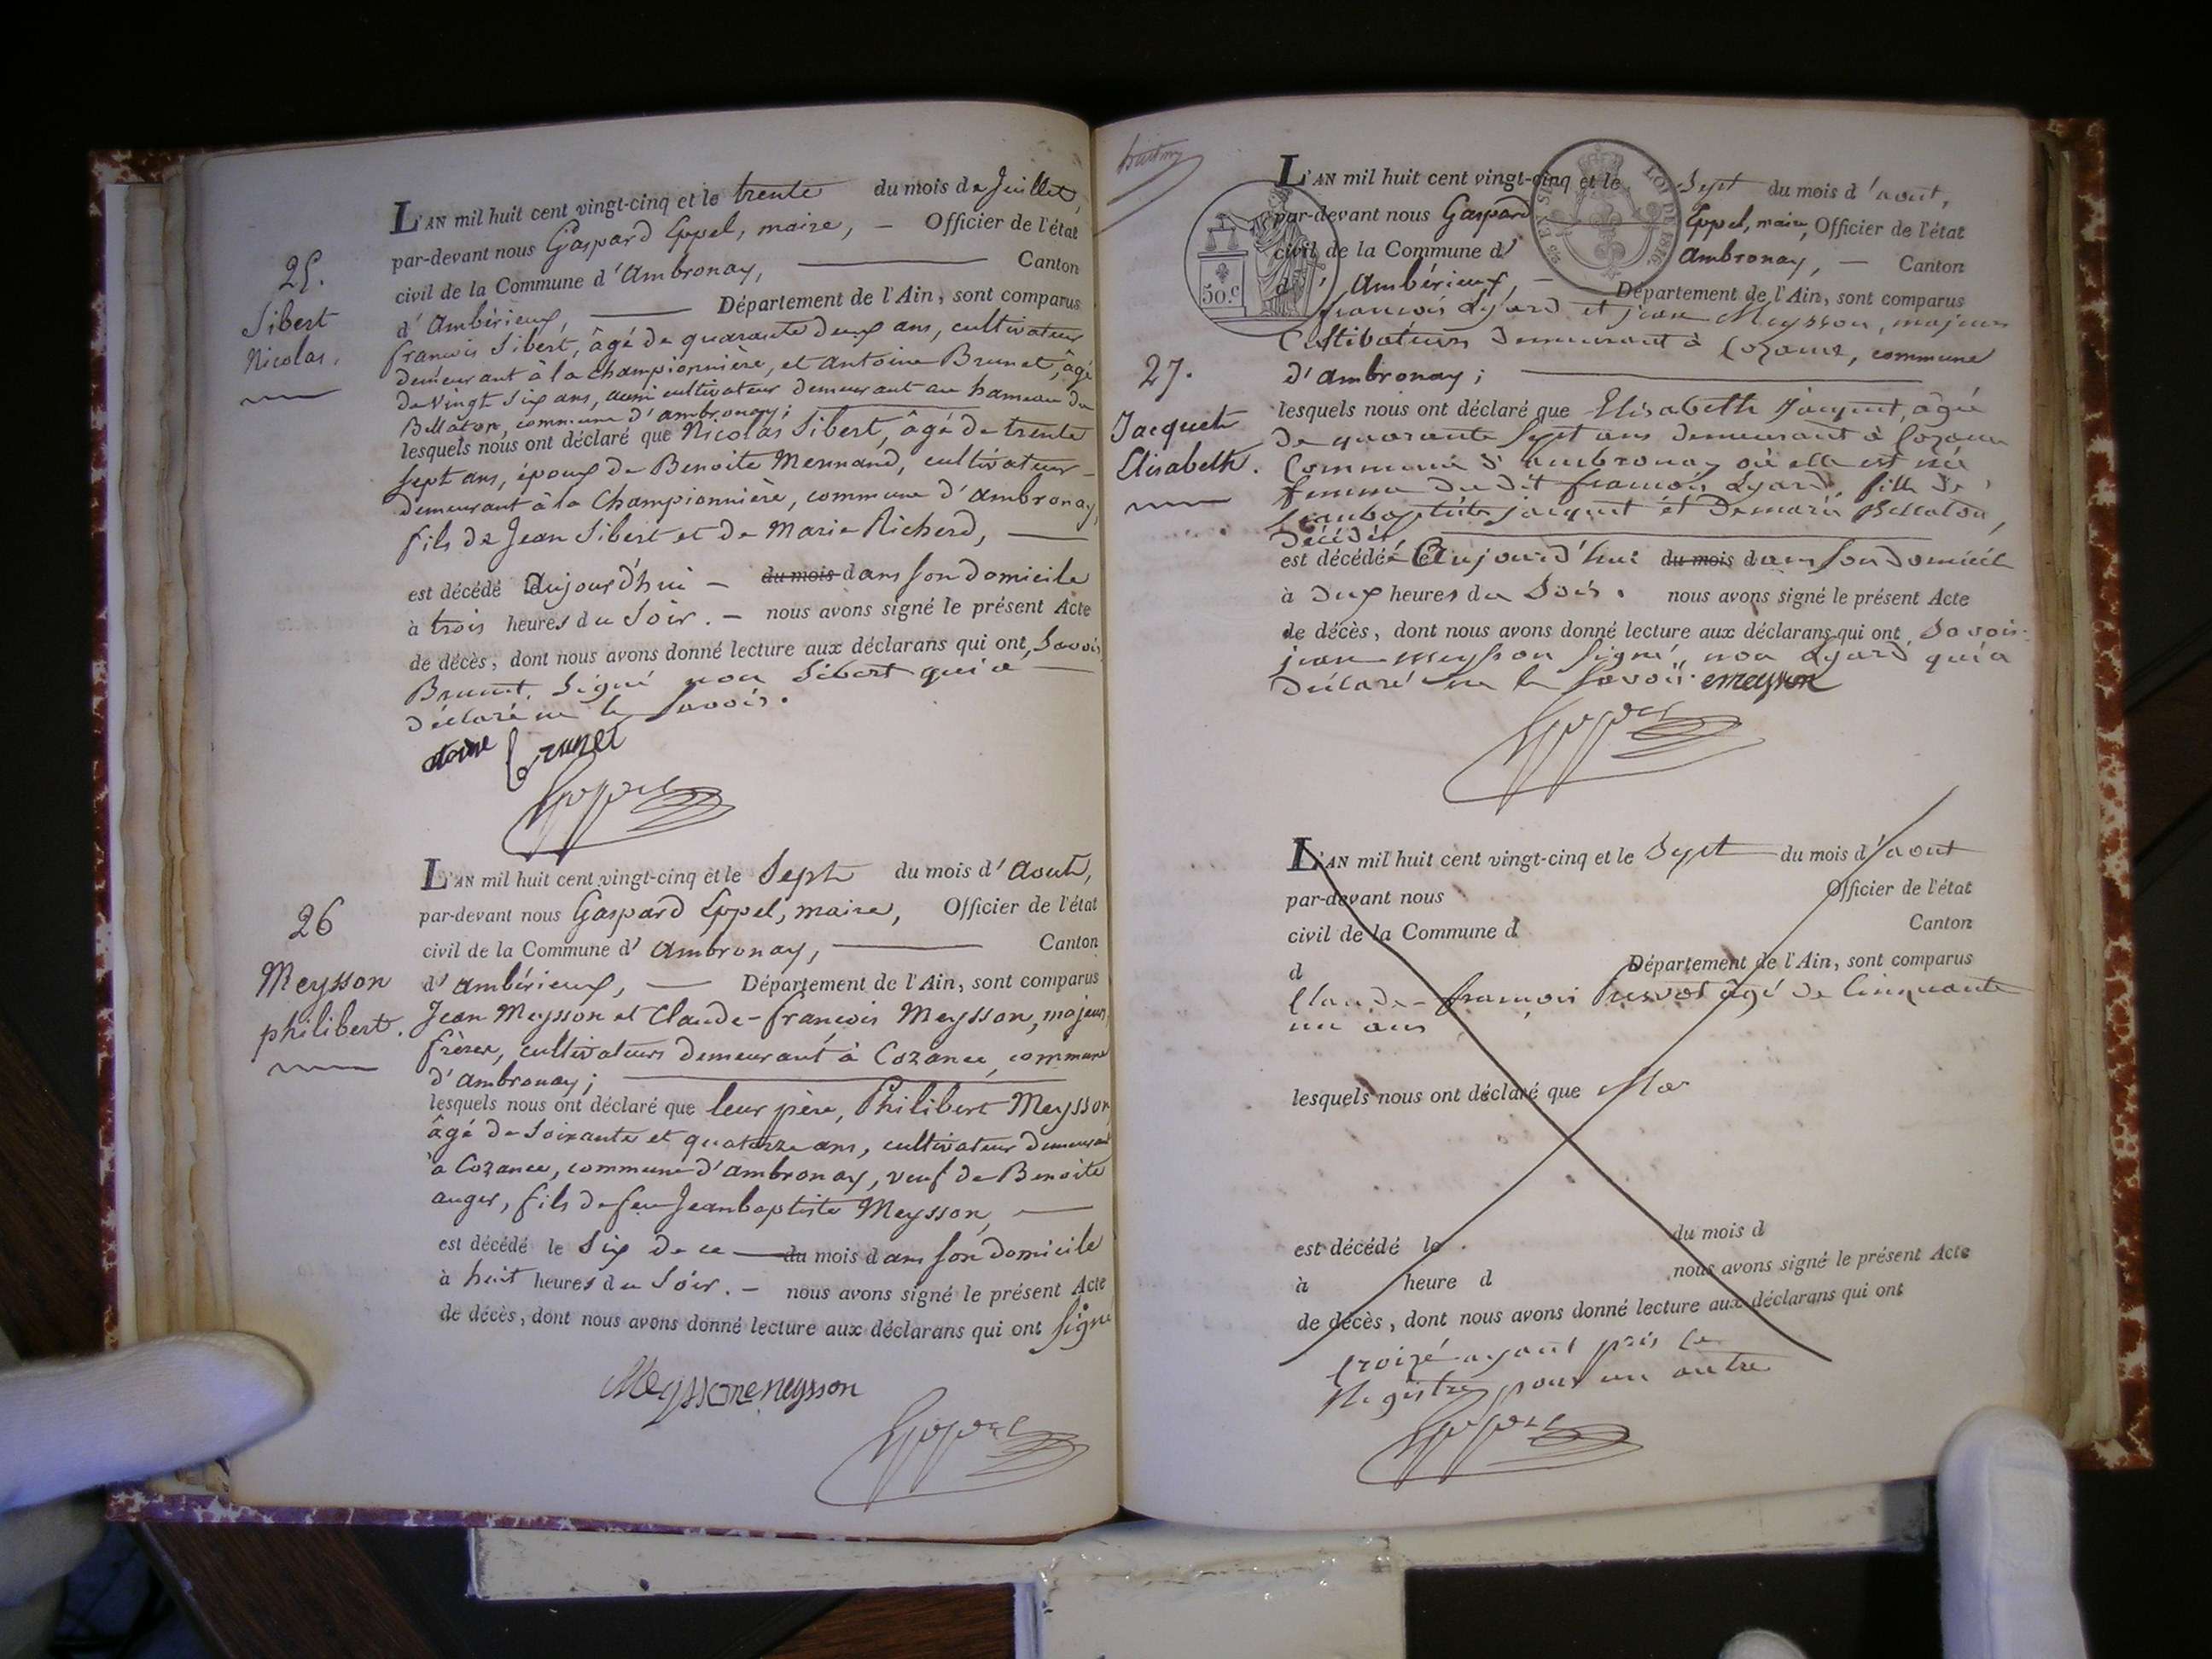 25.
Sibert
Nicolas.
L'AN mil huit cent vingt-cinq et le trente du mois de Juillet,
par-devant nous Gaspard Eppel, maire, — Officier de l'état
civil de la Commune d'Ambronay, — Canton
d'Ambérieux — Département de l'Ain, sont comparus
francois Sibert, âgé de quarante deux ans, cultivateur
demeurant à la Championnière, et Antoine Brunet, âgé
de vingt six ans, aussi cultivateur demeurant au hameau de
Bellaton, commune d'ambronay;
lesquels nous ont déclaré que Nicolas Sibert, âgé de trente
sept ans, époux de Benoite Mermand, cultivateur
demeurant à la Championnière, commune d'Ambronay,
fils de Jean Sibert et de Marie Richerd, —
est décédé aujourd'hui — du mois dans son Domicile
à trois heures du Soir. — nous avons signé le présent Acte
de décès, dont nous avons donné lecture aux déclarans qui ont, Savoir
Brunet, Signé non Sibert qui a
déclaré ne le Savoir.
atoine Brunet
Eppel
26
Meysson
philibert.
L'AN mil huit cent vingt-cinq et le Sept du mois d'Aout,
par-devant nous Gaspard Eppel, maire, Officier de l'état
civil de la Commune d'Ambronay, — Canton
d'ambérieux, — Département de l'Ain, sont comparus
Jean Meysson et Claude-françois Meysson, majeurs
frères, cultivateurs demeurant à Cozance, commune
d'ambronay;
lesquels nous ont déclaré que leur père, Philibert Meysson
âgé de Soixante et quatorze ans, cultivateur demeurant
à Cozance, commune d'ambronay, veuf de Benoite
auger, fils de feu Jeanbaptiste Meysson, —
est décédé le Six de ce du mois dans son domicile
à huit heures du Soir. — nous avons signé le présent Acte
de décès, dont nous avons donné lecture aux déclarans qui ont Signé
Meysson meysson
Eppel
50.c
LOI DE 1816
27.
Jacquet
Elisabeth.
L'AN mil huit cent vingt-cinq et le Sept du mois d'aout,
par-devant nous Gaspard Eppel, maire, Officier de l'état
civil de la Commune d' Ambronay, — Canton
d' Ambérieux, — Département de l'Ain, sont comparus
francois Lyard et jean Meysson, majeurs
Cultivateurs Demeurant à Cozance, commune
d'ambronay;
lesquels nous ont déclaré que Elisabeth Jacquet, âgée
de quarante Sept ans demeurant à Cozance
Commune d'ambronay où elle est née
femme Dudit francois Lyard, fille de
jeanbaptiste jacquet et Demarie Bellaton,
Décédés
est décédée Aujourd'hui du mois dans Son Domicile
à Dix heures du Soir. nous avons signé le présent Acte
de décès, dont nous avons donné lecture aux déclarans qui ont, Savoir:
jean meysson Signé, non Lyard qui a
Déclaré ne le Savoir. meysson
Eppel
L'AN mil huit cent vingt-cinq et le Sept du mois d'aout
par-devant nous Officier de l'état
civil de la Commune d Canton
d Département de l'Ain, sont comparus
Claude-francois âgé de Cinquante
un ans
lesquels nous ont déclaré que
est décédé le du mois d
à heure d nous avons signé le présent Acte
de décès, dont nous avons donné lecture aux déclarans qui ont
Croizé ayant pris ce
Registre pour un autre
Eppel